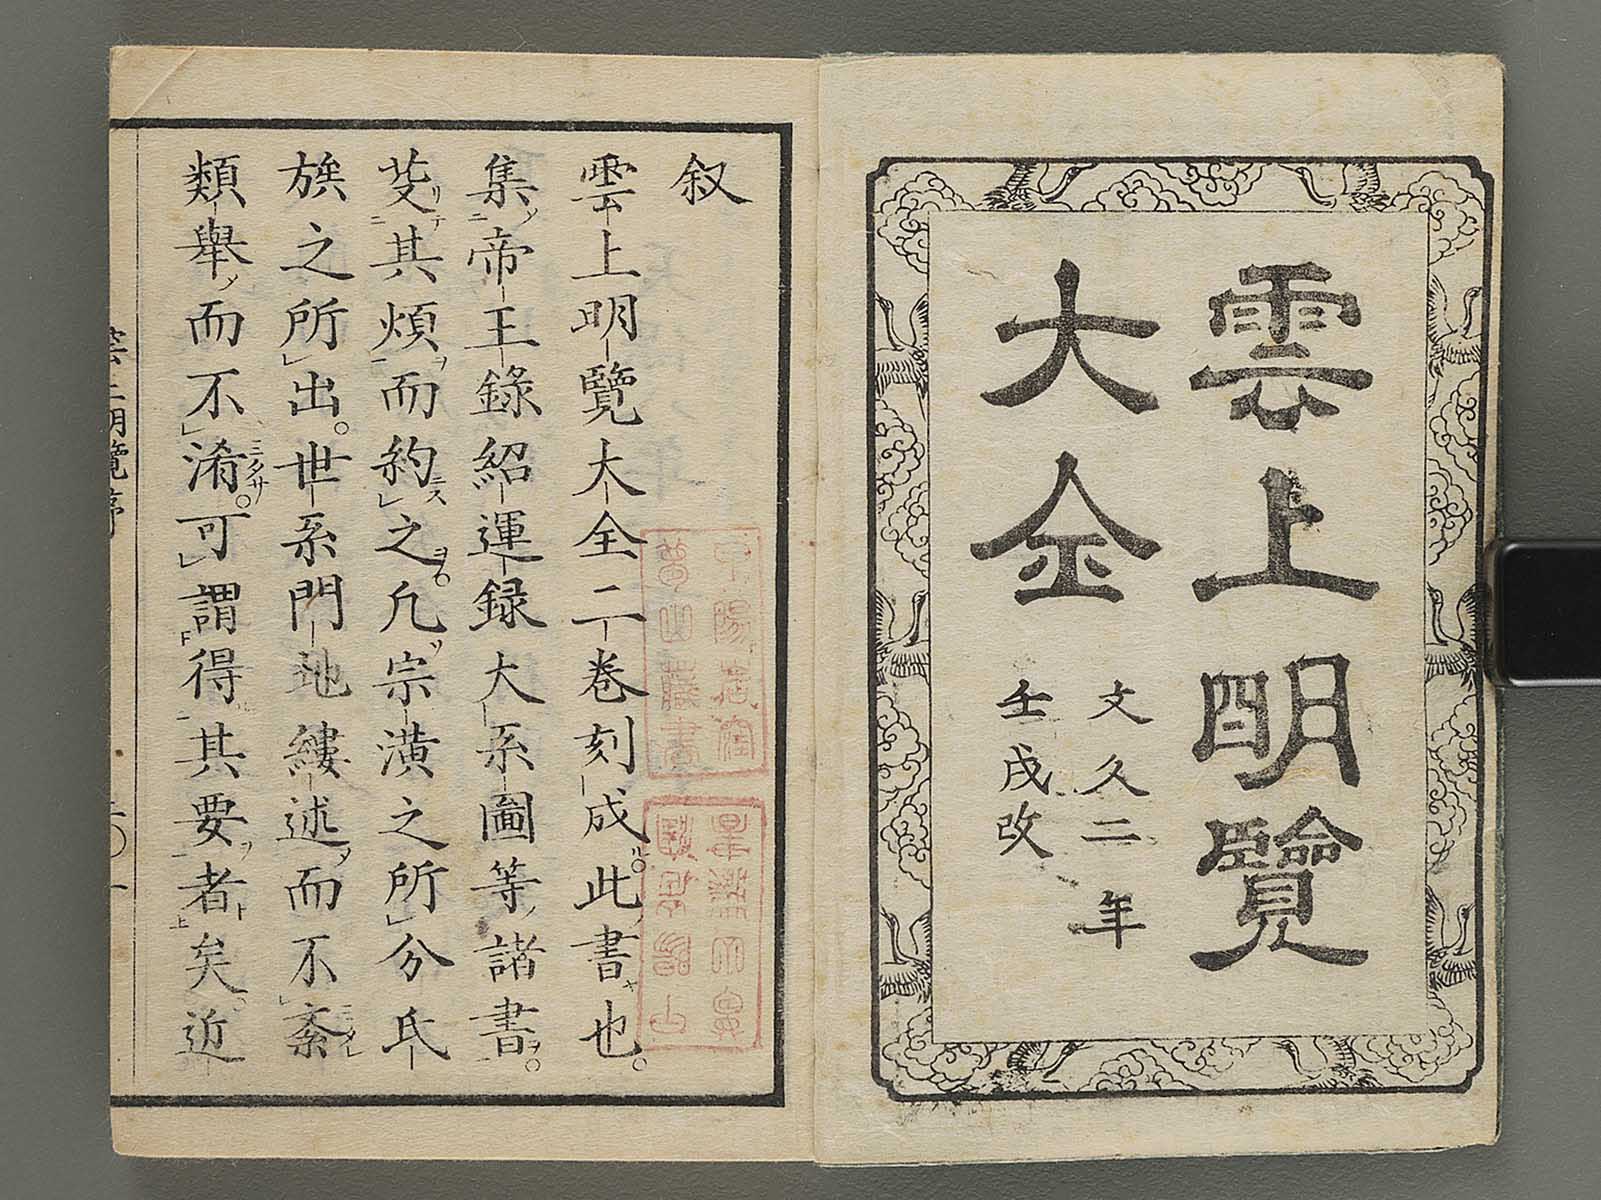 雲上明覽
大全
文久二年
壬戌改
叙
雲上明覽大全二卷刻成此書也
集帝王錄紹運録大系圖等諸書
芟其煩而約之凢宗潢之所分氏
族之所出世系門地縷述而不紊
類舉而不淆可謂得其要者矣近